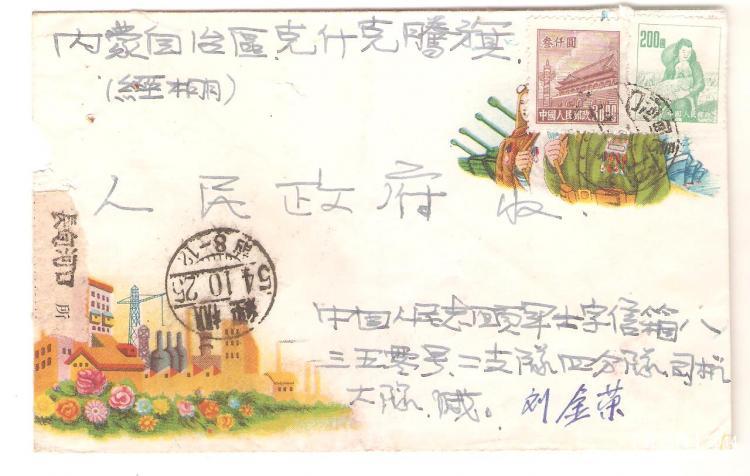 內蒙自治區克什克騰旗
(經棚)
叁仟圓
中國人民郵政 30.00
200圓
中國人民郵政
人民政府 收.
長甸河口
所
前8-12
54.10.25
經棚
中国人民志愿軍士字信箱八
三五零号.二支隊四分隊司机
大隊.緘。刘金荣